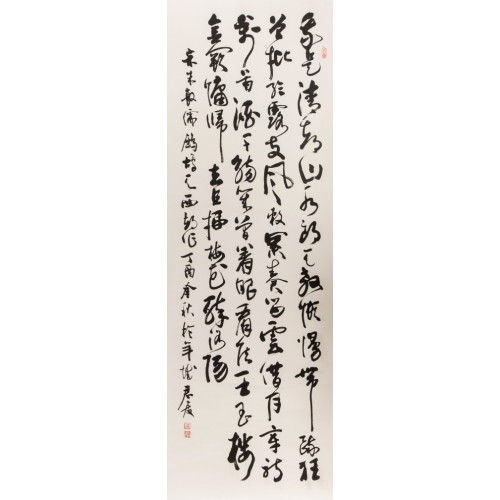 我是清都山水郎天教懶慢帶疏狂
曾批給露支風敕累奏留雲借月章詩
萬首酒千觴幾曾着眼看侯王玉樓
金闕慵歸去且插梅花醉洛陽
宋朱敦儒鷓鴣天西都作丁酉春秋於羊城